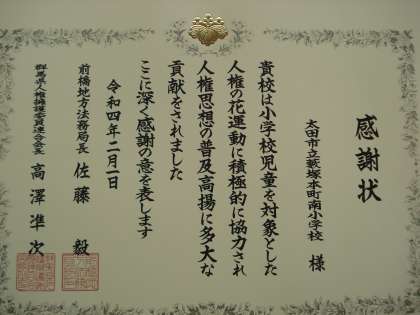 感謝状
太田市立薮塚本町南小学校 様
貴校は小学校児童を対象とした
人権の花運動に積極的に協力され
人権思想の普及高揚に多大な
貢献をされました
ここに深く感謝の意を表します
令和四年二月一日
前橋地方法務局長 佐藤 毅
群馬県人権擁護委員連合会長 高澤準次